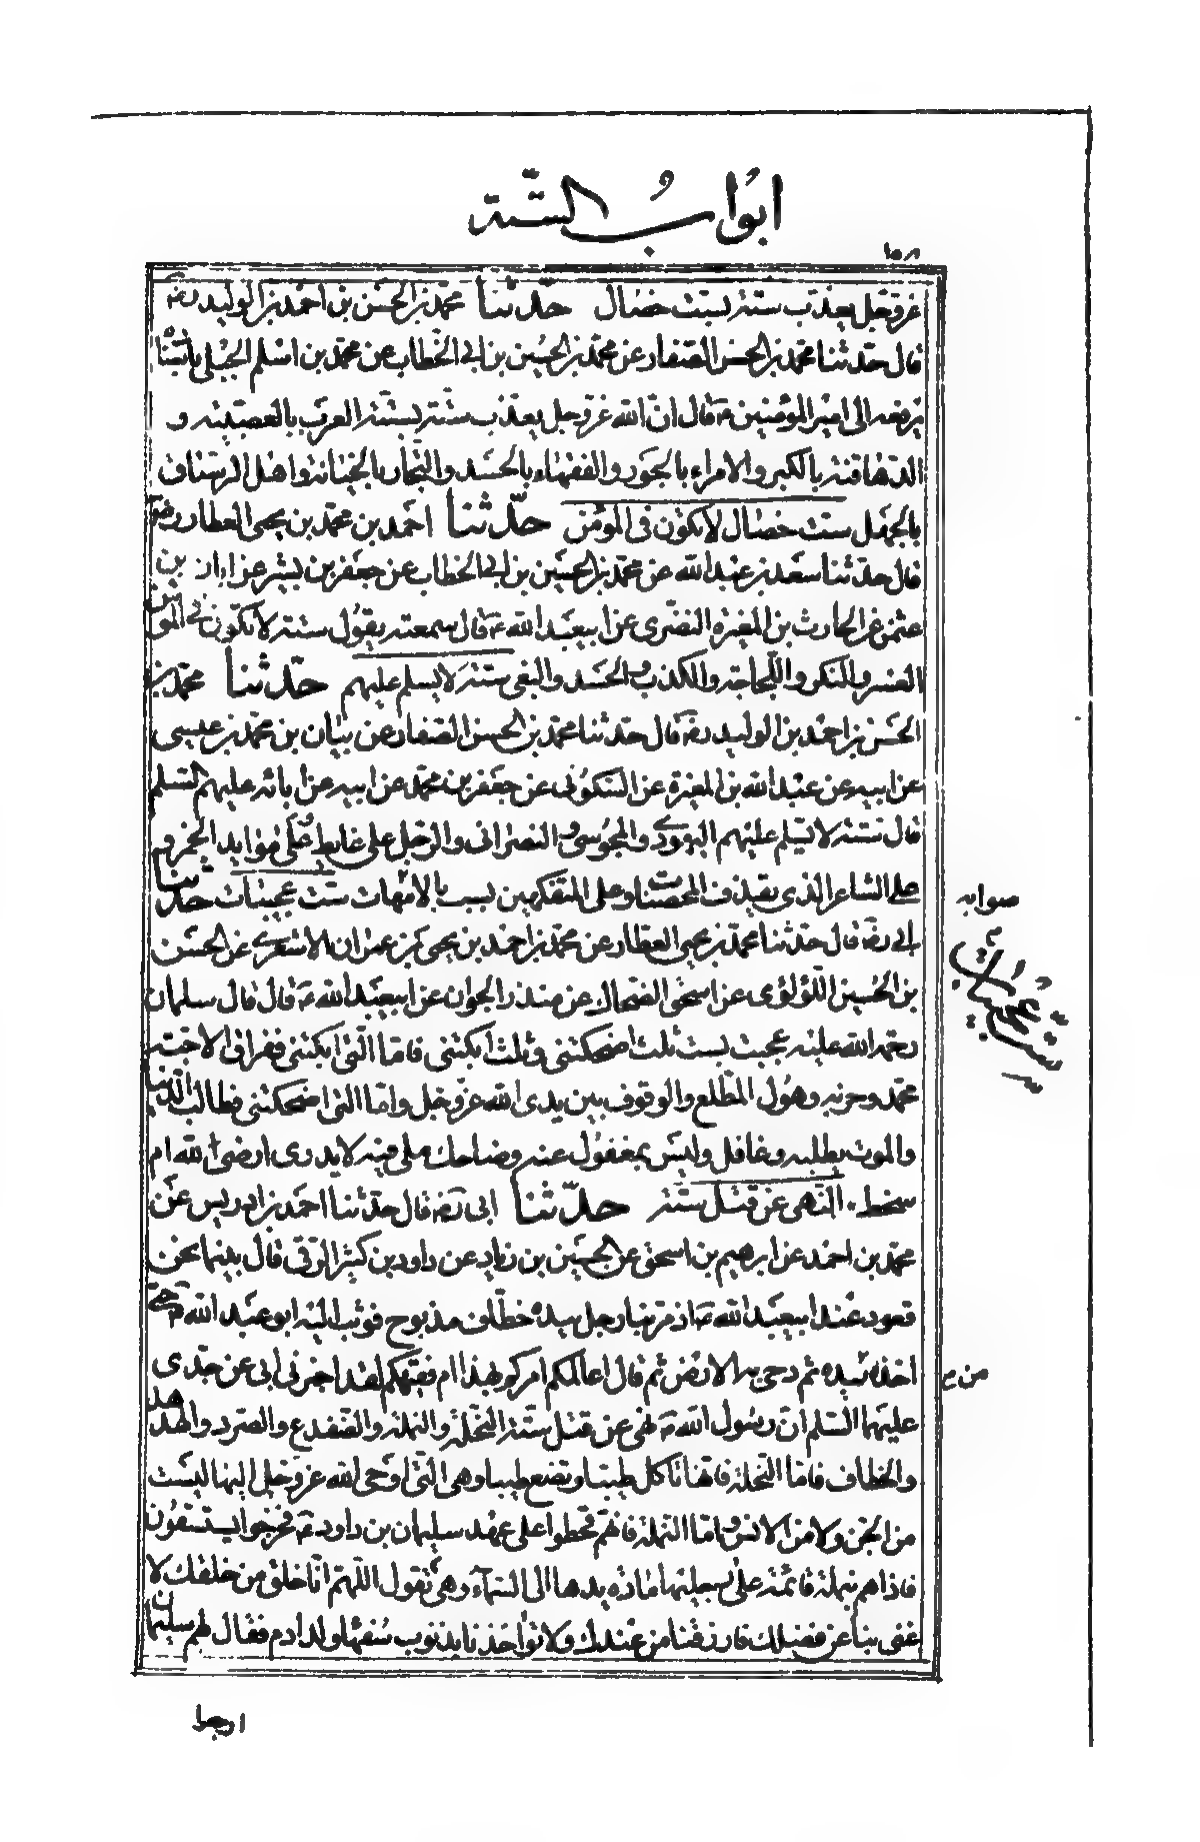 ابواب الستة
١٥٨
عز وجل يعذب ستة بست خصال حدثنا محمد بن الحسن بن احمد بن الوليد رضه
قال حدثنا محمد بن الحسن الصفار عن محمد بن الحسين بن ابى الخطاب عن محمد بن اسلم الجبلى باسناد
يرفعه الى امير المؤمنين ع قال ان الله عز وجل يعذب ستة بستة العرب بالعصبية و
الدهاقنة بالكبر والامراء بالجور والفقهاء بالحسد والتجار بالخيانة واهل الرستاق
بالجهل ست خصال لا تكون فى المؤمن حدثنا احمد بن محمد بن يحيى العطار رضه
قال حدثنا سعد بن عبد الله عن محمد بن الحسين بن ابى الخطاب عن جعفر بن بشير عن ابان بن
عثمن عن الحارث بن المغيرة النضرى عن ابيعبد الله ع قال سمعته يقول ستة لا تكون فى المؤمن
العسر والنكد واللجاجة والكذب والحسد والبغى ستة لا يسلم عليهم حدثنا محمد بن
الحسن بن احمد بن الوليد رضه قال حدثنا محمد بن الحسن الصفار عن بنان بن محمد بن عيسى
عن ابيه عن عبد الله بن المغيرة عن السكونى عن جعفر بن محمد عن ابيه عن ابائه عليهم السلم
قال ستة لا يسلم عليهم اليهودى والمجوسى والنصرانى والرجل على غايط وعلى موايد الخمر و
على الشاعر الذى يقذف المحصنات وعلى المتفكهين بسب بالامهات ست عجيبات حدثنا
ابى رضه قال حدثنا محمد بن يحيى العطار عن محمد بن احمد بن يحيى بن عمران الاشعرى عن الحسن
بن الحسين اللؤلؤى عن اسحق الضحاك عن منذر الجوان عن ابيعبد الله ع قال قال سلمان
رحمة الله عليه عجبت بست ثلث اضحكتنى وثلث ابكتنى فاما التى ابكتنى ففراق الاحبة
محمد وحزبه وهول المطلع والوقوف بين يدى الله عز وجل واما التى اضحكتنى فطالب الدنيا
والموت يطلبه وغافل وليس بمغفول عنه وضاحك ملى فيه لا يدرى ارضى الله ام
سخط النهى عن قتل ستة حدثنا ابى رضه قال حدثنا احمد بن ادريس عن
محمد بن احمد عن ابرهيم بن اسحق عن الحسين بن زياد عن داود بن كثير الرقى قال بينما نحن
قعود عند ابيعبد الله ع اذ مر بنا رجل بيده خطاف مذبوح فوثب اليه ابو عبد الله ع حتى
اخذه بيده ثم دحى به الارض ثم قال اعالمكم امركم بهذا ام فقيهكم لقد اخبرنى ابى عن جدى
عليهما السلم ان رسول الله ص نهى عن قتل ستة النحلة والنملة والضفدع والصرد والهدهد
والخطاف فاما النحلة فانها تاكل طيبا وتضع طيبا وهى التى اوحى الله عز وجل اليها ليست
من الجن ولا من الانس واما النملة فانهم قحطوا على عهد سليمان بن داود ع فخرجوا يستسقون
فاذا هم بنملة قائمة على رجليها مادة يدها الى السماء وهى تقول اللهم انا خلق من خلقك لا
غنى بنا عن فضلك فارزقنا من عندك ولا تواخذنا بذنوب سفهاء ولد ادم فقال لهم سليمان
صوابه
ست عجيبات
من م
ارجعوا